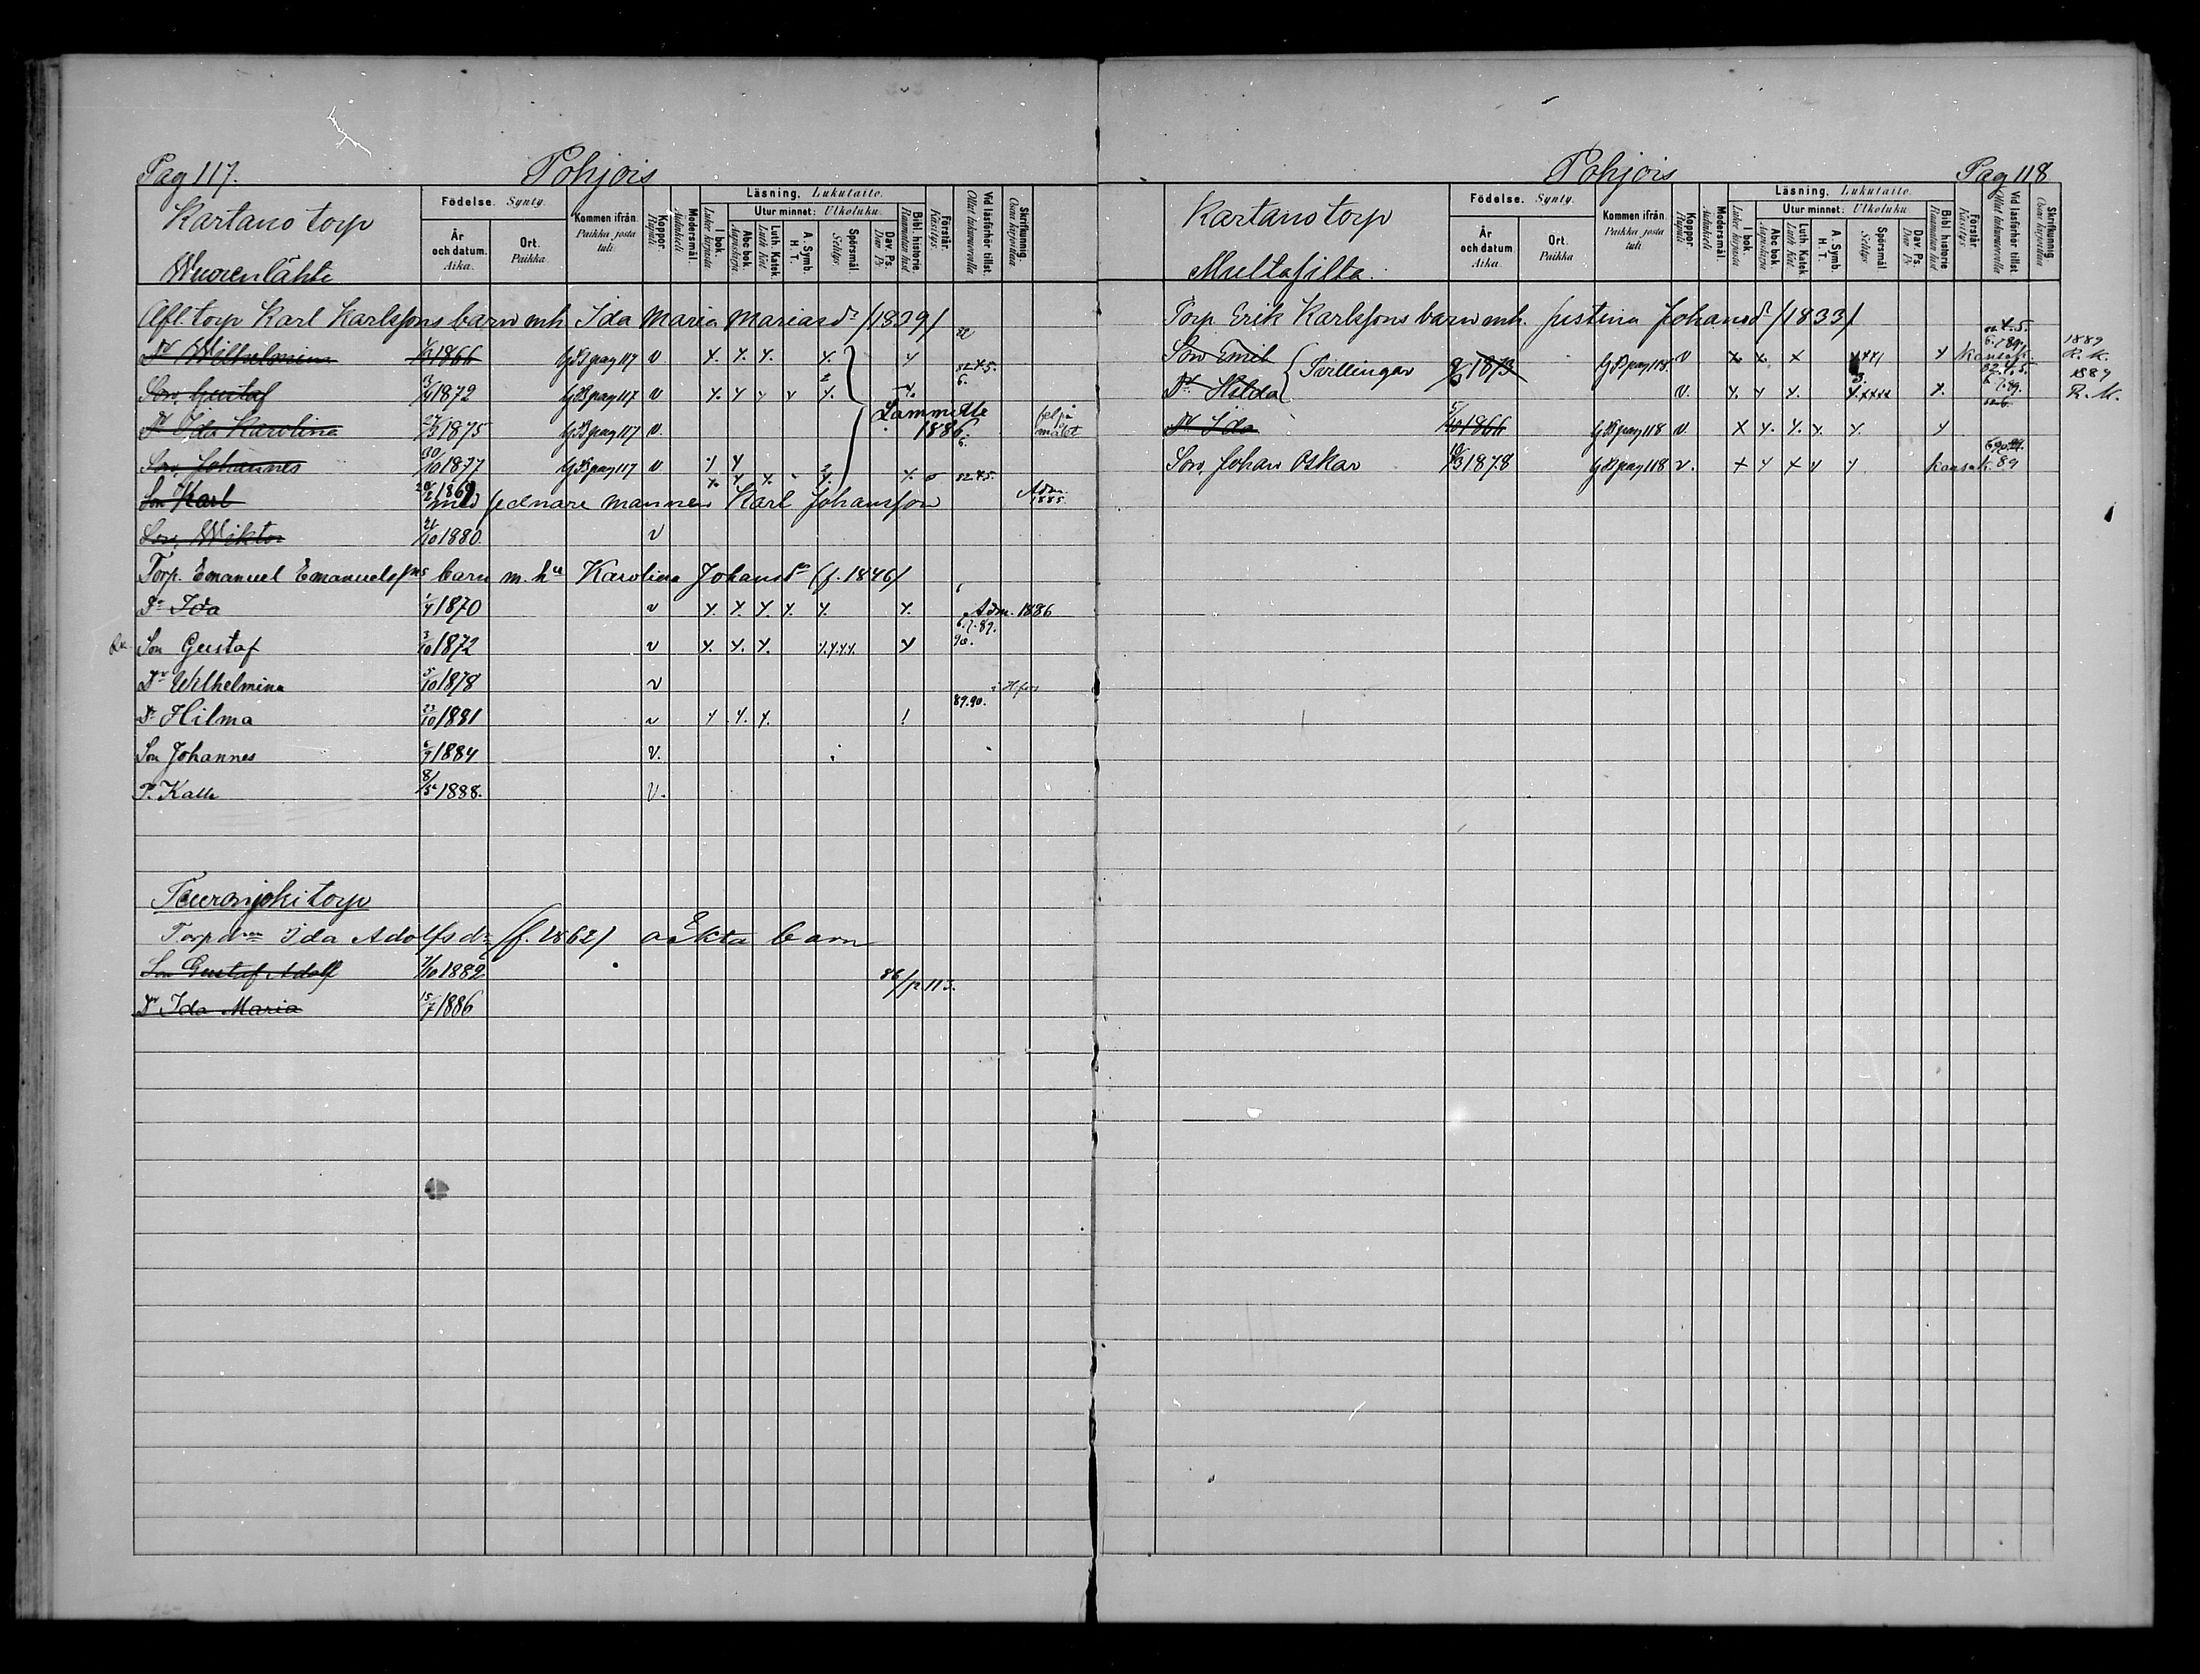 Pag 117.
Pohjois
Kartano torp
Wuorenlähte
Födelse. Synty.
År och datum. Aika.
Ort. Paikka.
Kommen ifrån. Paikka, josta tuli.
Koppor. Rupuli
Modersmål. Äidinkieli
Läsning. Lukutaito.
I bok. Lukee kirjasta
Utur minnet: Ulkoluku.
Abc bok. Aapiskirja.
Luth. Katek. Luth Kat
A. Symb. H. T.
Spörsmål. Selitys.
Dav. Ps. Dav Ps
Bibl. historie Raamatun hist
Förstår. Käsitys.
Vid läsförhör tillst. Ollut lukuvuorolla
Skrifkunning. Osaa kirjoittaa
Afl. torp Karl Karlssons barn mh Ida Maria Mariasdr /1839/
Dr Wilhelmina 1866 GB pag 117 v x. x. x. x. x 82
Son Gustaf 3/9 1872 GB pag 117 v x. x x v x. 82.4.5. 6.
Dr Ida Karolina 27/3 1875 GB pag 117 v. Lammille 1886. 6. fel på målet
Son Johannes 30/10 1877 GB pag 117 v x x 82.4.5.
Son Karl 1869 med sednare mannen Karl Johansson Adm. 1885.
Son Wiktor 21/10 1880. v
Torp. Emanuel Emanuelssns barn m. hu Karolina Johansdr (f. 1846)
Dr Ida 1/4 1870 v x. x. x. x. x. x. 6 Adm. 1886
Son Gustaf 3/10 1872 v x. x. x. x.x.x.x. x 6.7.89. 90.
Dr Wilhelmina 5/10 1878 v i Hfors
Dr Hilma 23/10 1881 v x x. x. 89.90.
Son Johannes 6/9 1884 v.
P. Kalle 8/5 1888. v.
Tauronjoki torp
Torp dren Ida Adolfsdr (f. 1862) oäkta barn
Son Gustaf Adolf 7/10 1882 86/p. 113.
Dr Ida Maria 15/7 1886
Pohjois
Pag 118
Kartano torp
Multasilta.
Födelse. Synty.
År och datum Aika.
Ort. Paikka
Kommen ifrån. Paikka, josta tuli.
Koppor. Rupuli
Modersmål. Äidinkieli
Läsning. Lukutaito.
I bok. Lukee kirjasta
Utur minnet: Ulkoluku
Abc bok. Aapiskirja
Luth. Katek. Luth Kat
A. Symb. H. T.
Spörsmål. Selitys
Dav. Ps. Dav Ps
Bibl. historie Raamatun hist
Förstår. Käsitys.
Vid läsförhör tillst. Ollut lukuvuorolla
Skrifkunning. Osaa kirjoittaa
Torp. Erik Karlssons barn mh. Justina Johansdr /1833/
Son Emil Tvillingar 1873 GB pag 118. v x x. x x 1889 R. K.
Dr Hilda v. x. x x. x. 1889 R. K.
Dr Ida 5/10 1866 GB pag 118 v. x x. x. x. x. x
Son Johan Oskar 1878 GB pag 118 v. x x x x x 89